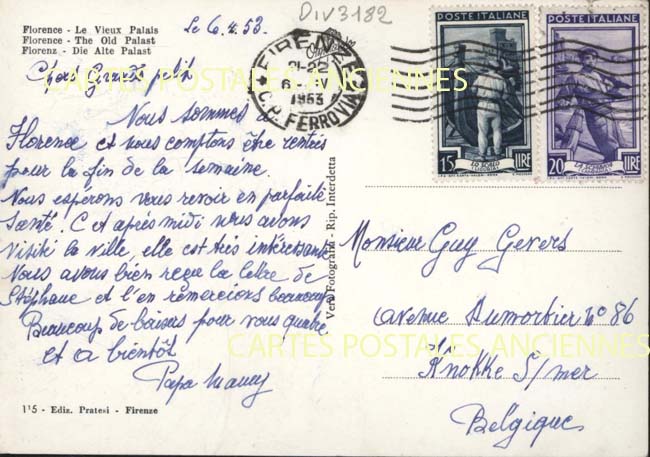 DIV3182
Florence - Le Vieux Palais
Florence - The Old Palast
Florenz - Die Alte Palast
Le 6.4.53.
FIRENZE
21-22
6
1953
C.P. FERROVIA
POSTE ITALIANE
15 LIRE
POSTE ITALIANE
20 LIRE
CARTES POSTALES ANCIENNES
Chers
Nous sommes à
Florence et nous comptons être rentrés
pour la fin de la semaine.
Nous esperons vous revoir en parfaite
santé. Cet après midi nous avons
visité la ville, elle est très intéressante
Nous avons bien reçu la lettre de
Stéphane et l'en remercions beaucoup
Beaucoup de baisers pour vous quatre
et a bientôt
Papa Mamy
Vera Fotografia - Rip. Interdetta
Monsieur Guy Gevers
avenue Dumortier N° 86
Knokke s/mer
Belgique
CARTES POSTALES ANCIENNES
115 - Ediz. Pratesi - Firenze